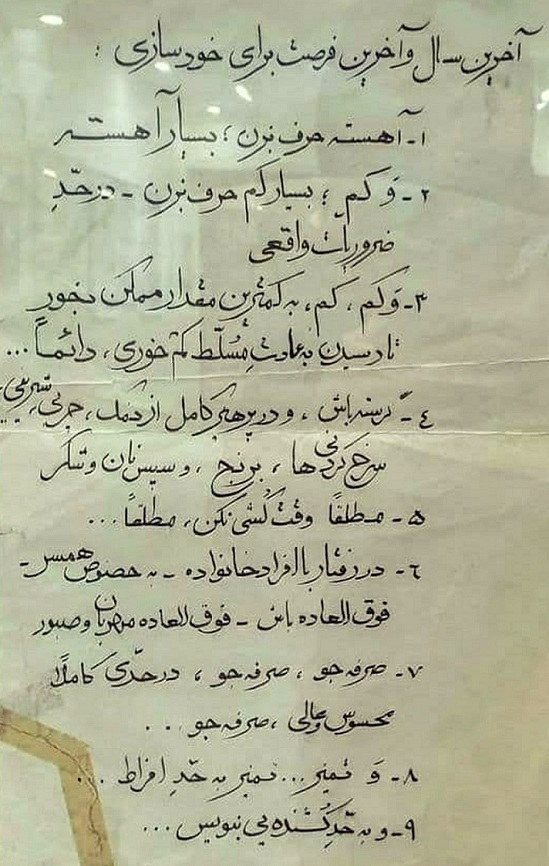 آخرین سال و آخرین فرصت برای خودسازی :
۱- آهسته حرف بزن ؛ بسیار آهسته
۲- وَ کم ؛ بسیار کم حرف بزن - در حدّ
ضروریات واقعی
۳- وَ کم ، کم ، به کمترین مقدار ممکن بخور
تا رسیدن به عادت مُسلّط کم خوری ، دائماً ...
٤- گرسنه باش ، و در پرهیز کامل از نمک ، چربی ، شیرینی ،
سرخ کردنی ها ، برنج ، و سپس نان و شکر
۵- مطلقاً وقت کُشی نکن ، مطلقاً ...
٦- در رفتار با افراد خانواده - به خصوص همسر -
فوق العاده باش - فوق العاده مهربان و صبور
۷- صرفه جو ، صرفه جو ، در حدّی کاملاً
محسوس و عالی ، صرفه جو ...
۸- وَ تمیز ... تمیز به حدّ افراط ...
۹- و به حدّ کُشنده یی بنویس ...